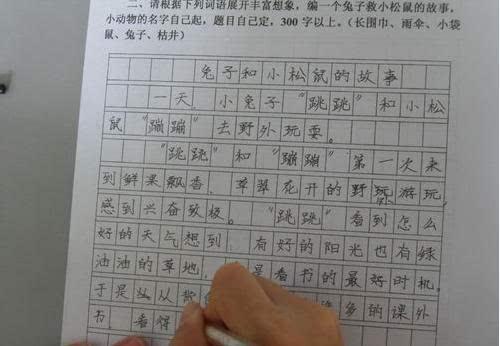 二、请根据下列词语展开丰富想象,编一个兔子救小松鼠的故事,
小动物的名字自己起,题目自己定,300字以上。(长围巾、雨伞、小袋
鼠、兔子、枯井)
兔子和小松鼠的故事
一天,小兔子“跳跳”和小松
鼠“蹦蹦”去野外玩耍。
“跳跳”和“蹦蹦”第一次来
到鲜果飘香,草翠花开的野外游玩,
感到兴奋致极。“跳跳”看到怎么
好的天气想到 有好的阳光也有绿
油油的草地, 是看书的最好时机。
于是 从 多的课外
书,看得